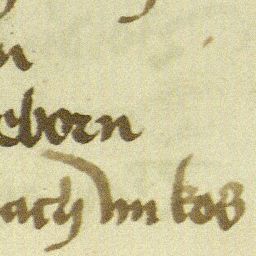 n
eborn
ach im kos